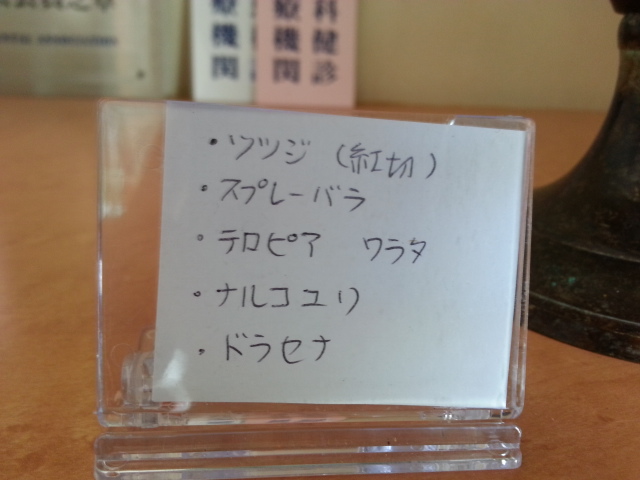 療機関
療機関
科健診
・ツツジ (紅切)
・スプレーバラ
・テロピア ワラタ
・ナルコユリ
・ドラセナ